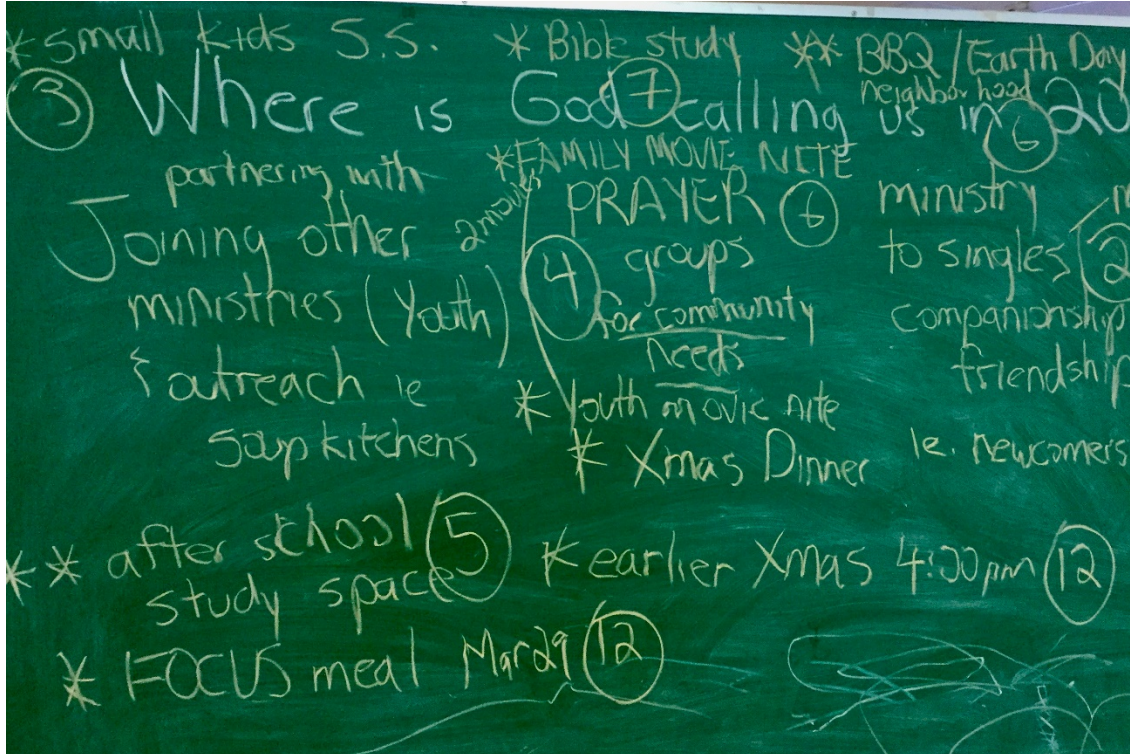 *small kids S.S.
③
* Bible study
⑦
** BBQ / Earth Day
neighborhood
⑥
Where is God calling us in 20
partnering with
Joining other
ministries (Youth)
& outreach ie
soup kitchens
*FAMILY MOVIE NITE
2 movies
④
PRAYER ⑥
groups
for community
needs
* Youth movie nite
* Xmas Dinner
ministry
to singles ②
companionship
friendship
ie. newcomers
** after school ⑤
study space
* earlier Xmas 4:00pm ⑫
* FOCUS meal Mar29 ⑫